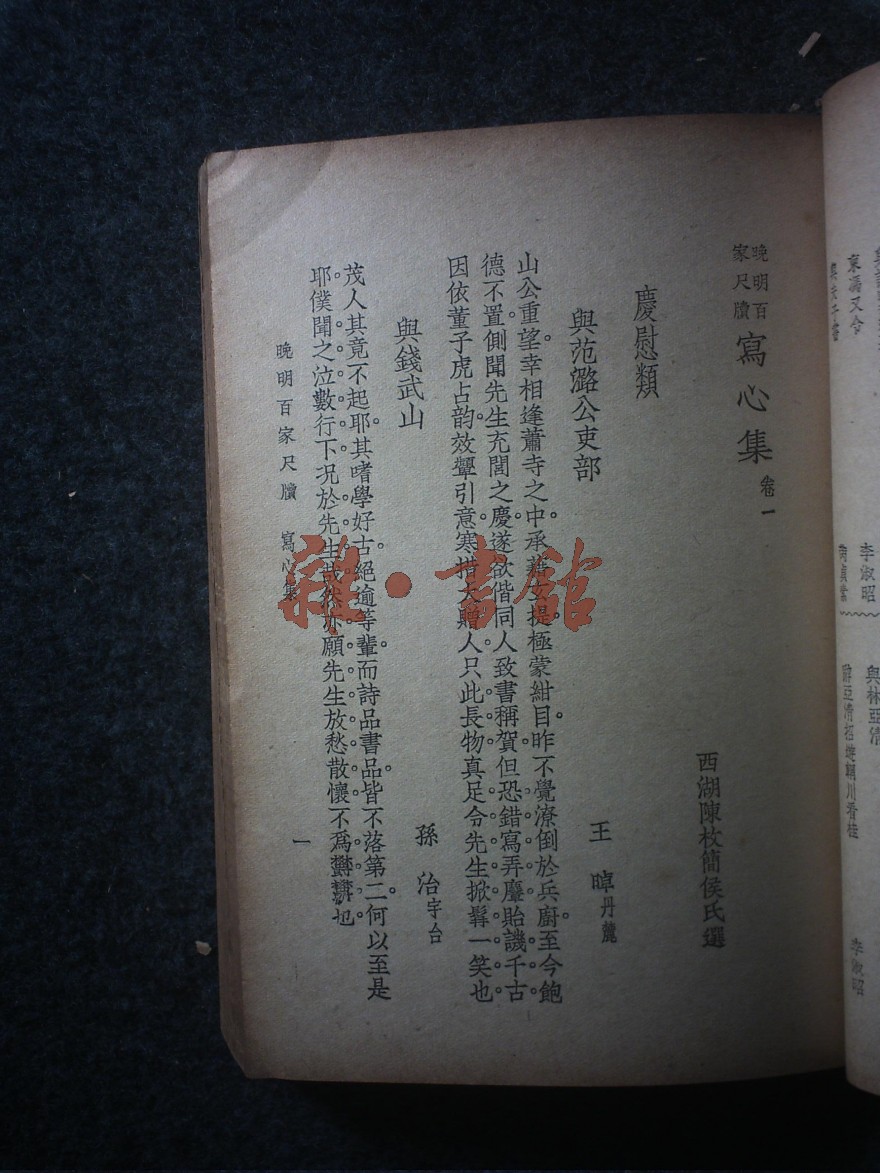 李淑昭
與林亞清
李淑昭
晚明百家尺牘 寫心集 卷一
西湖陳枚簡侯氏選
慶慰類
與范潞公吏部 王晫丹麓
山公重望。幸相逢蕭寺之中。承藉女提。極蒙紺目。昨不覺潦倒於兵廚。至今飽
德不置。側聞先生充閭之慶。遂欲偕同人致書稱賀。但恐錯寫弄麞。貽譏千古。
因依董子虎占韵。效顰引意。寒措大贈人。只此長物。真足令先生掀髯一笑也
與錢武山 孫治宇台
茂人其竟不起耶。其嗜學好古。絕逾等輩。而詩品書品。皆不落第二。何以至是
耶。僕聞之泣數行下。况於先生哉。然亦願先生放愁散懷。不爲
晚明百家尺牘 寫心集 一
雜·書館